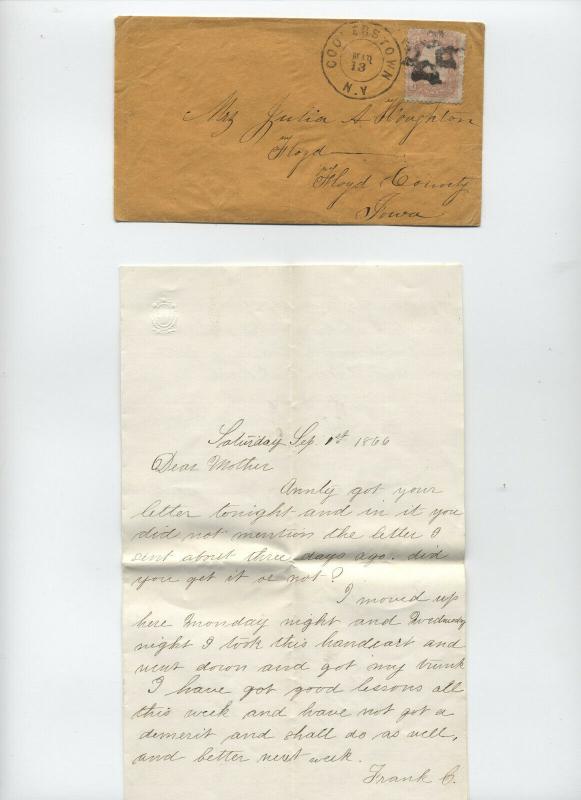 COOPERSTOWN N.Y.
MAR
13
Mrs Julia A Houghton
Floyd
Floyd County
Iowa
Saturday Sep. 1st 1866
Dear Mother
Annty got your
letter tonight and in it you
did not mention the letter I
sent about three days ago. did
you get it or not?
I moved up
here Monday night and Wednesday
night I took this handcart and
went down and got my trunk
I have got good lessons all
this week and have not got a
demerit and shall do as well,
and better next week.
Frank C.